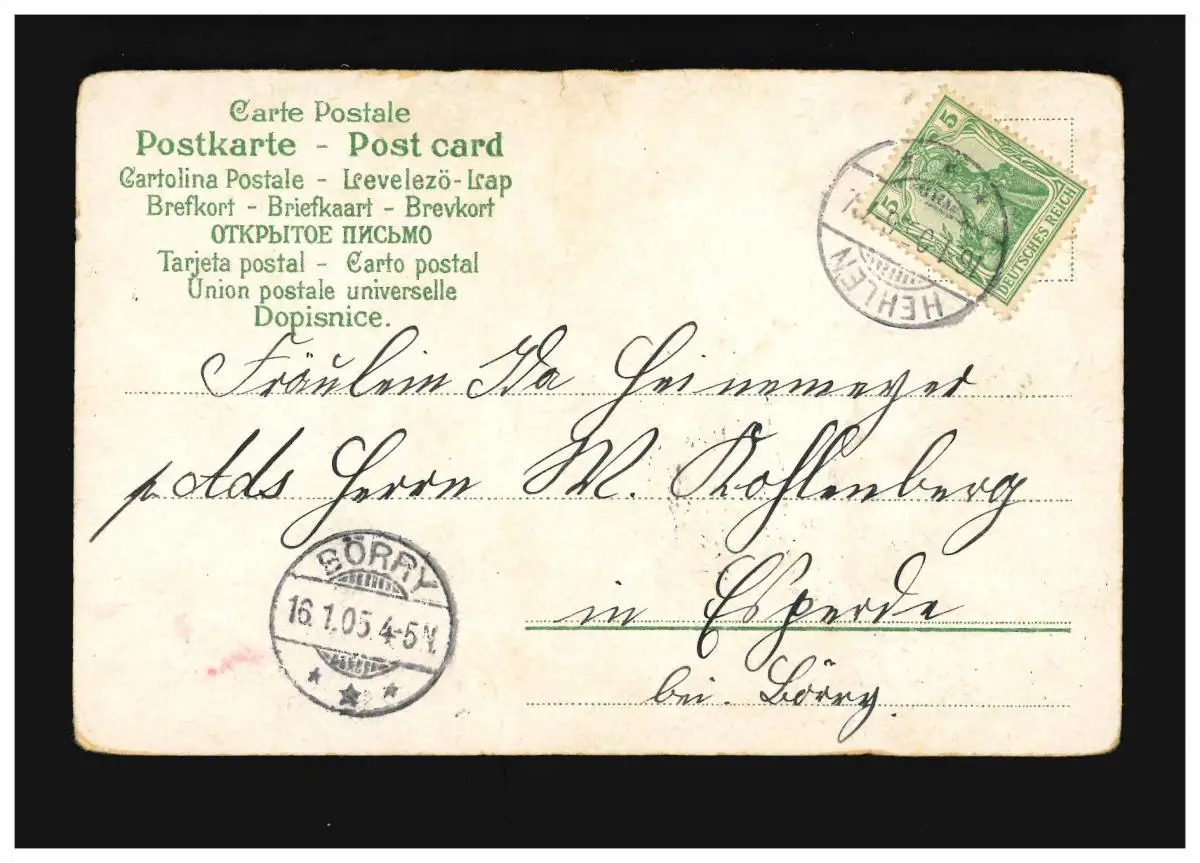 Carte Postale
Postkarte - Post card
Cartolina Postale - Levelező-Lap
Brefkort - Briefkaart - Brevkort
ОТКРЫТОЕ ПИСЬМО
Tarjeta postal - Carto postal
Union postale universelle
Dopisnice.
5
5
DEUTSCHES REICH
HEHLEN
16.1.05
Fräulein Ida Heinemeyer
p. Ads Herrn W. Kohlenberg
in Esperde
bei Börry.
BÖRRY
16.1.05.4-5N.